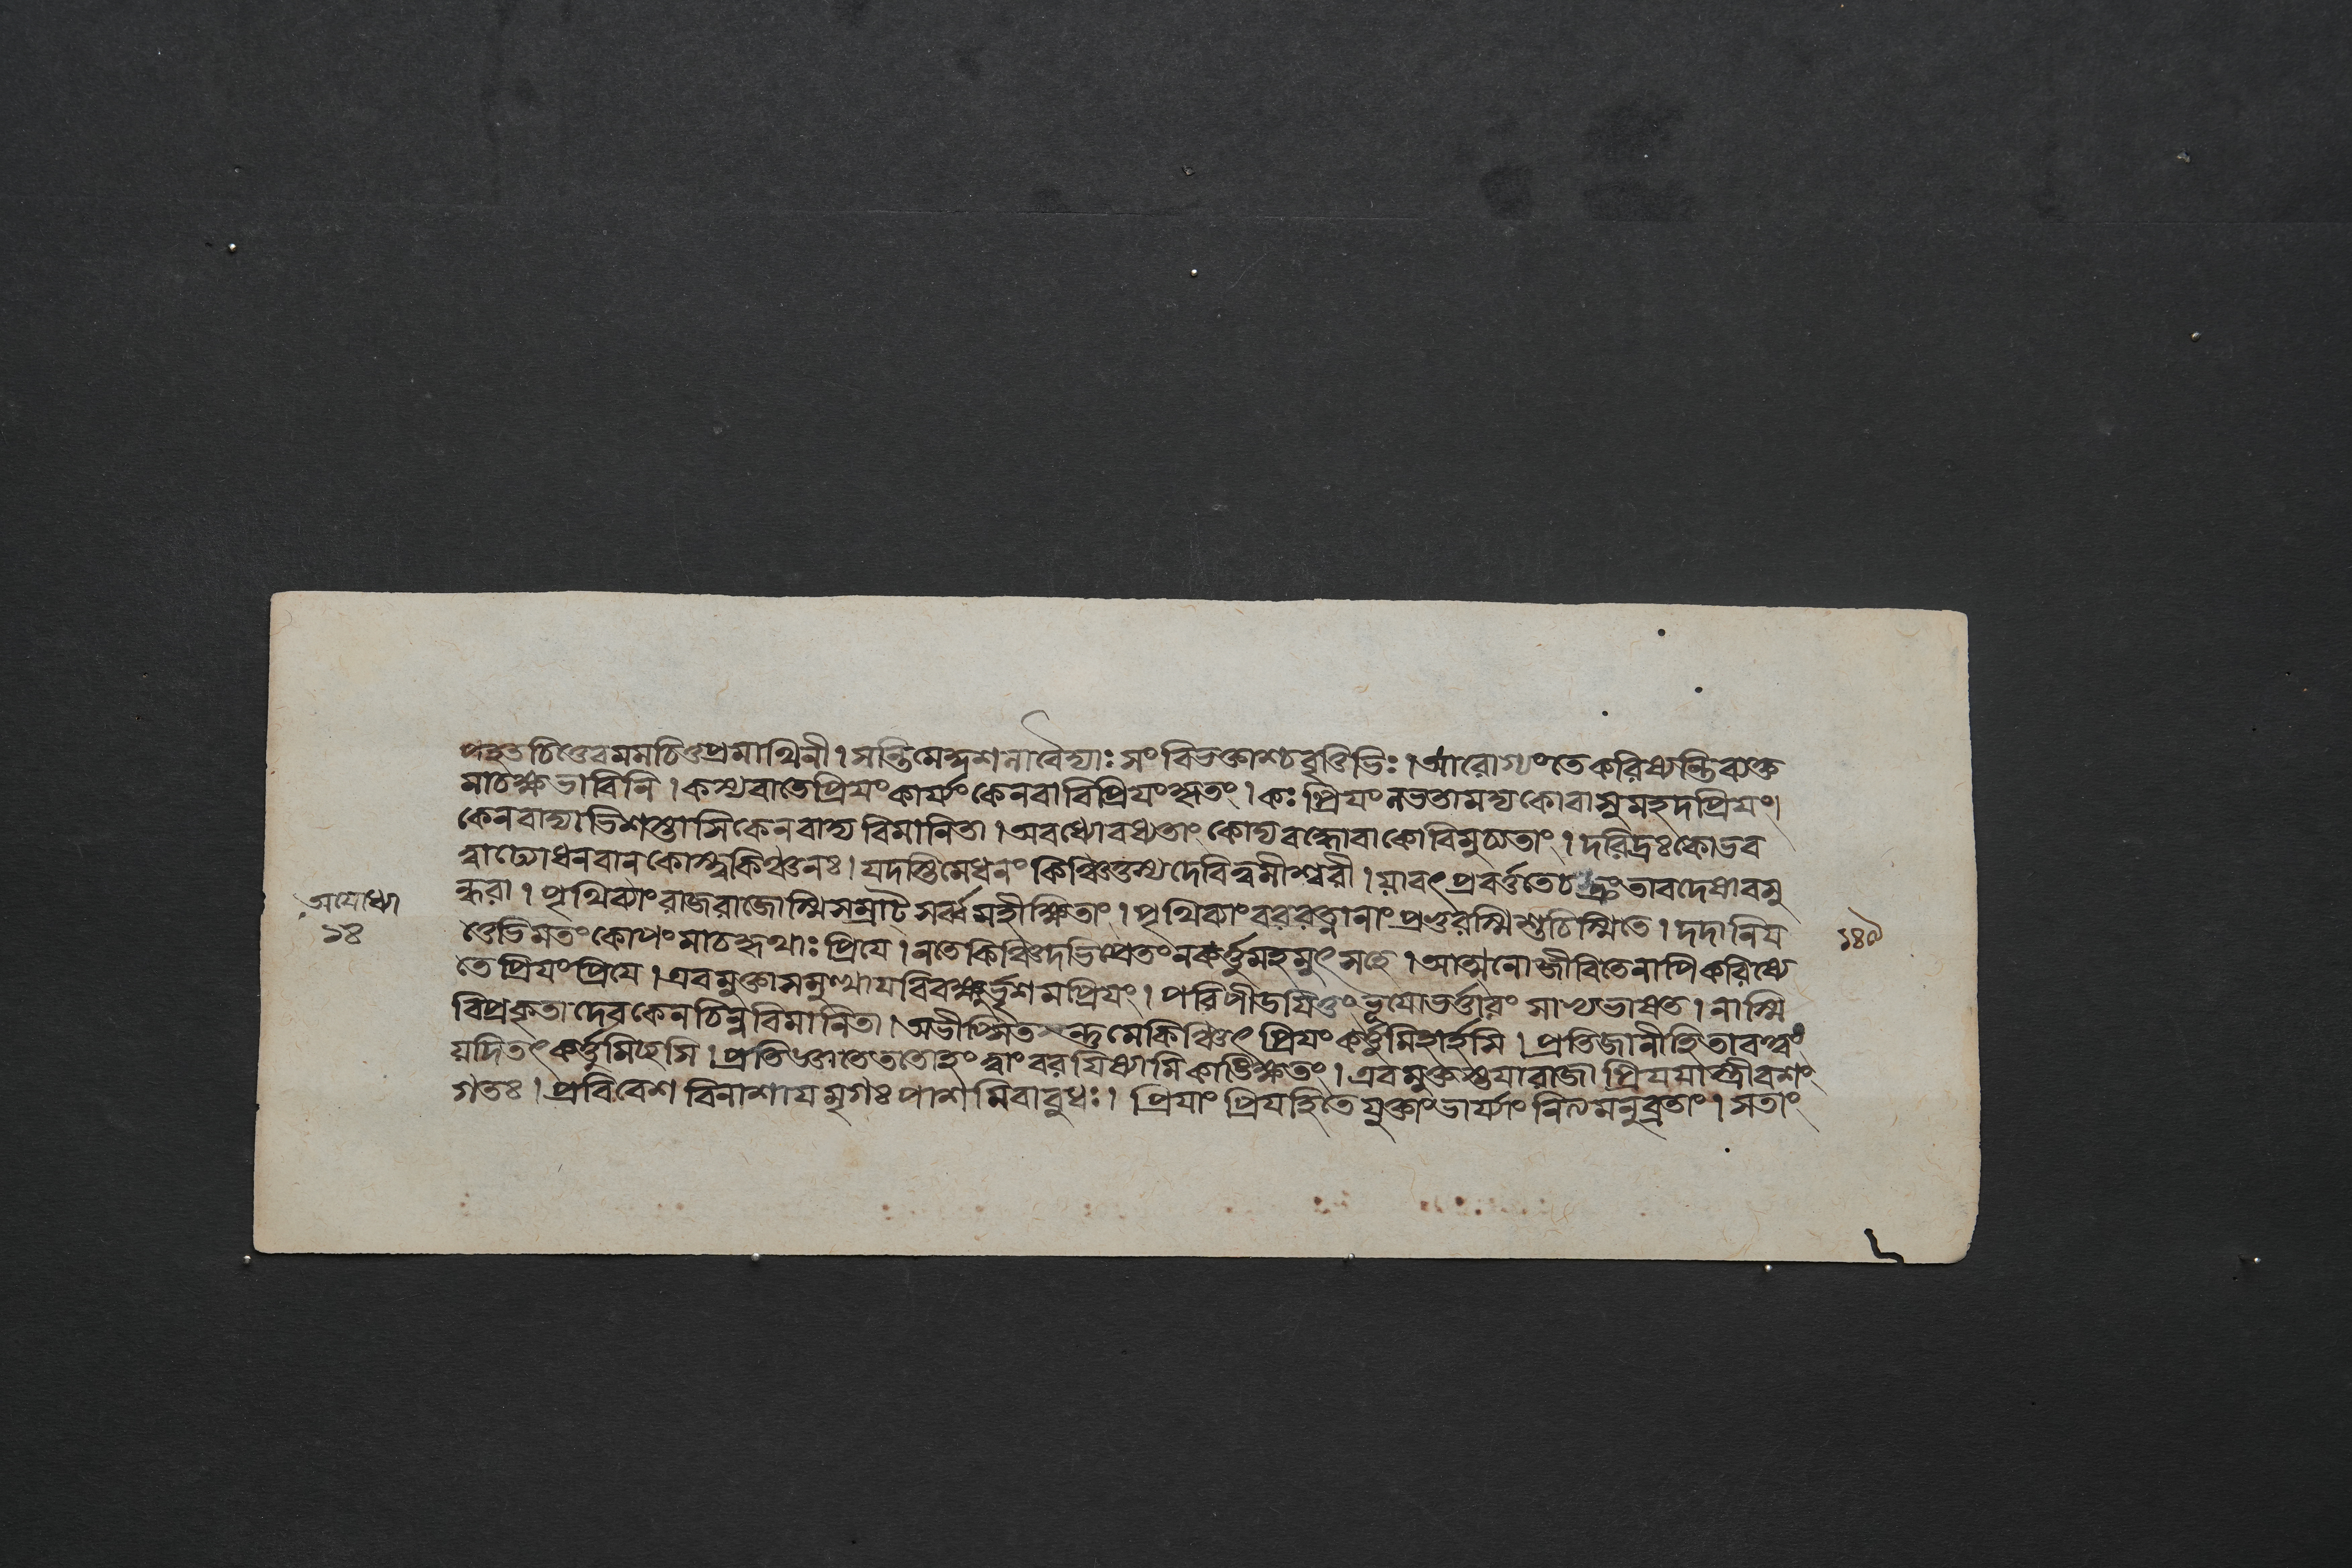 পহৃতচিত্তেবমমচিত্তপ্রমাথিনী। সন্তিমেকুশলাবৈদ্যাঃ সংবিভক্তাশ্চবৃত্তিভিঃ। আরোগ্যংতেকরিষ্যন্তিব্যক্ত
মাচক্ষ্বভাবিনি। কস্যবাতেপ্রিযংকার্য্যংকেনবাবিপ্রিযংকৃতং। কঃ প্রিযংলভতামদ্যকোবাসুমহদপ্রিযং।
কেনবাদ্যাভিশস্তাসিকেনবাদ্য বিমানিতা। অবধ্যোবধ্যতাং কোদ্যবধ্যোবাকোবিমুচ্যতাং। দরিদ্রঃকোভব
ত্বাঢ্যোধনবান্ কোস্ত্বকিঞ্চনঃ। যদস্তিমেধনং কিঞ্চিত্তস্যদেবিত্বমীশ্বরী। যাবৎ প্রবর্ত্ততেচক্রংতাবদেষাবসু
ন্ধরা। পৃথিব্যাংরাজরাজোস্মিসম্রাট্ সর্ব্বমহীক্ষিতাং। পৃথিব্যাংবররত্নানাং প্রভুরস্মিশুচিস্মিতে। দদানিয
ত্তেভিমতংকোপংমাচকৃথাঃ প্রিযে। নতেকিঞ্চিদভিপ্রেতংনকর্ত্তুমহমুৎসহে। আত্মনোজীবিতেনাপিকরিষ্যে
তে প্রিযংপ্রিযে। এবমুক্তাসমুত্থাযবিবক্ষুর্ভৃশমপ্রিযং। পরিপীডযিতুং ভূযোভর্ত্তারং সাভ্যভাষত। নাস্মি
বিপ্রকৃতাদেবকেনচিন্নবিমানিতা। অভীপ্সিতন্তুমেকিঞ্চিৎ প্রিযং কর্ত্তুমিহার্হসি। প্রতিজানীহিতাবত্ত্বং
যদিতৎকর্ত্তুমিচ্ছসি। প্রতিজ্ঞাতেততোহং ত্বাং বরযিষ্যামিকাঙ্ক্ষিতং। এবমুক্তস্তযারাজা প্রিযযাস্ত্রীবশং
গতঃ। প্রবিবেশ বিনাশায মৃগঃ পাশমিবাবুধঃ। প্রিযাং প্রিযহিতে যুক্তাংভার্য্যাং নিত্যমনুব্রতাং। সতাং
অযোধ্যা
১৪
১৪০